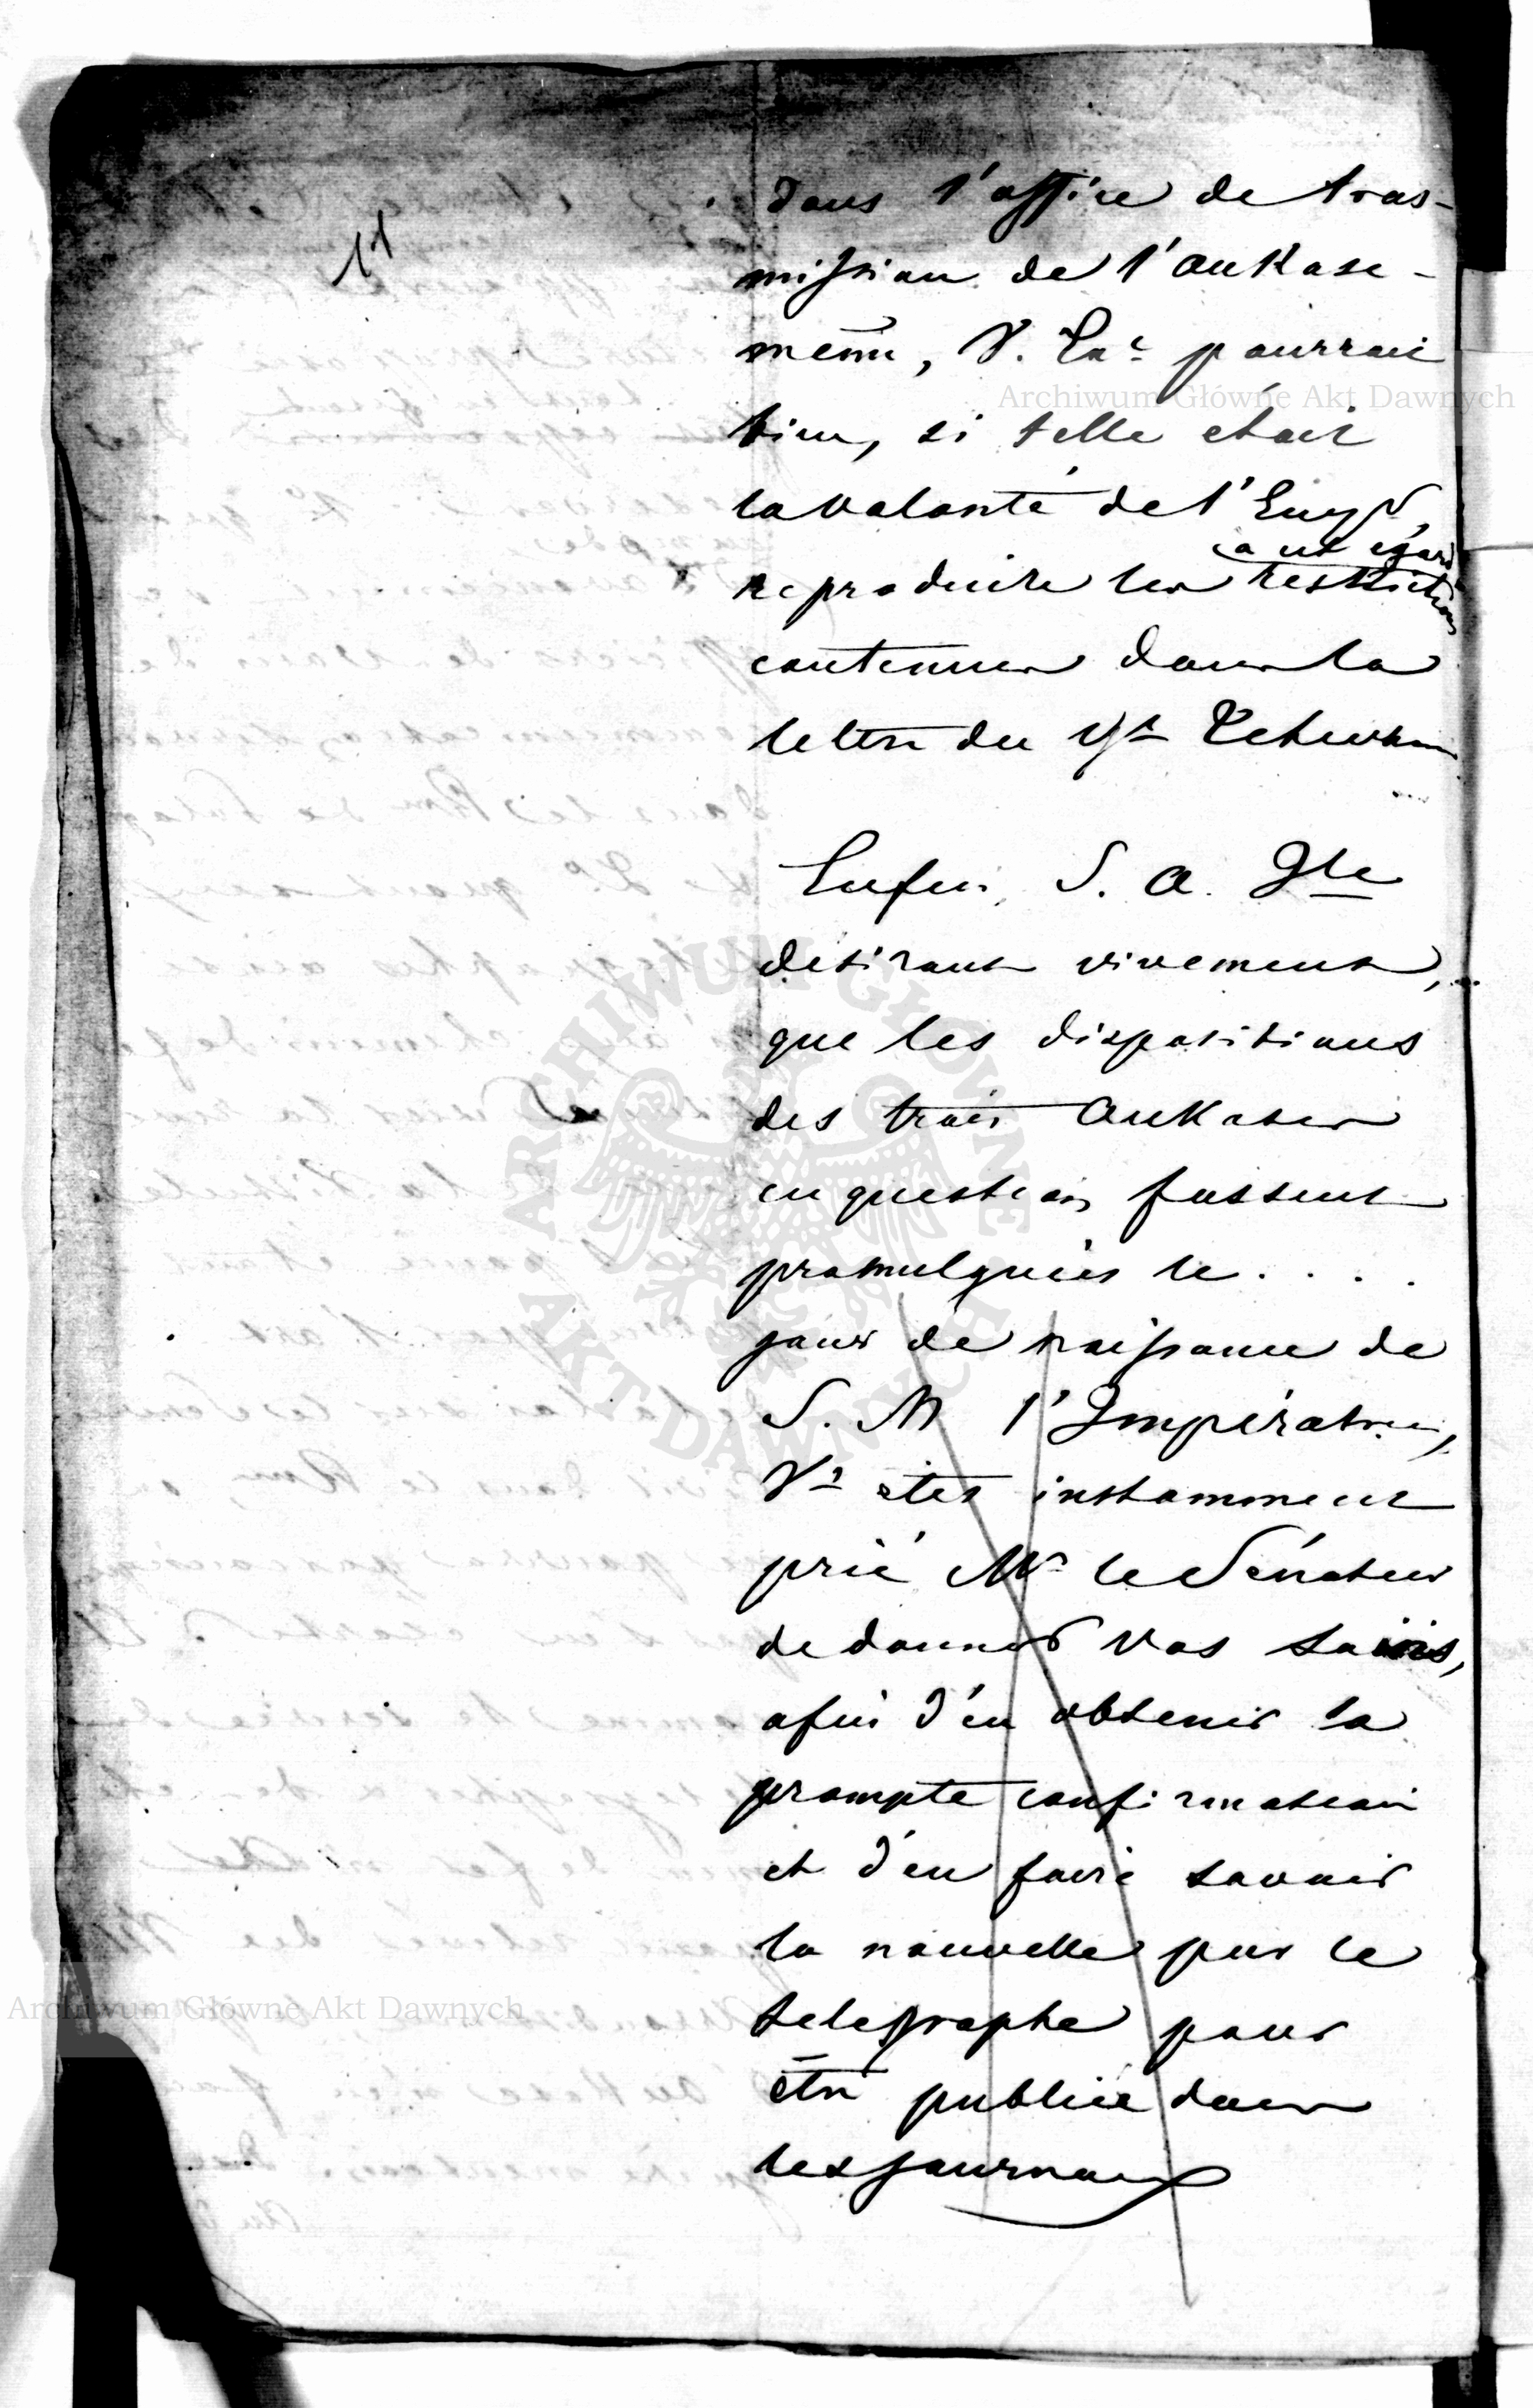 11
dans l'office de tras-
mission de l'oukase -
même, V. Exc pourrait
bien, si telle etait
la volonté de l'Emp,
à cet égard
reproduire les restrictions
contenues dans la
lettre du
Enfin, S. A. Ile
desirant vivement,
que les dispositions
des trois Oukases
en question fussent
promulguées le . . . .
jour de naissance de
S. M l'Impératrice,
Vs êtes instamment
prié Mr le Sénateur
de donner vos soins,
afin d'en obtenir la
prompte confirmation
et d'en faire savoir
la nouvelle par le
telegraphe pour
être publiée dans
les journaux
Archiwum Główne Akt Dawnych
ARCHIWUM GŁÓWNE AKT DAWNYCH
Archiwum Główne Akt Dawnych